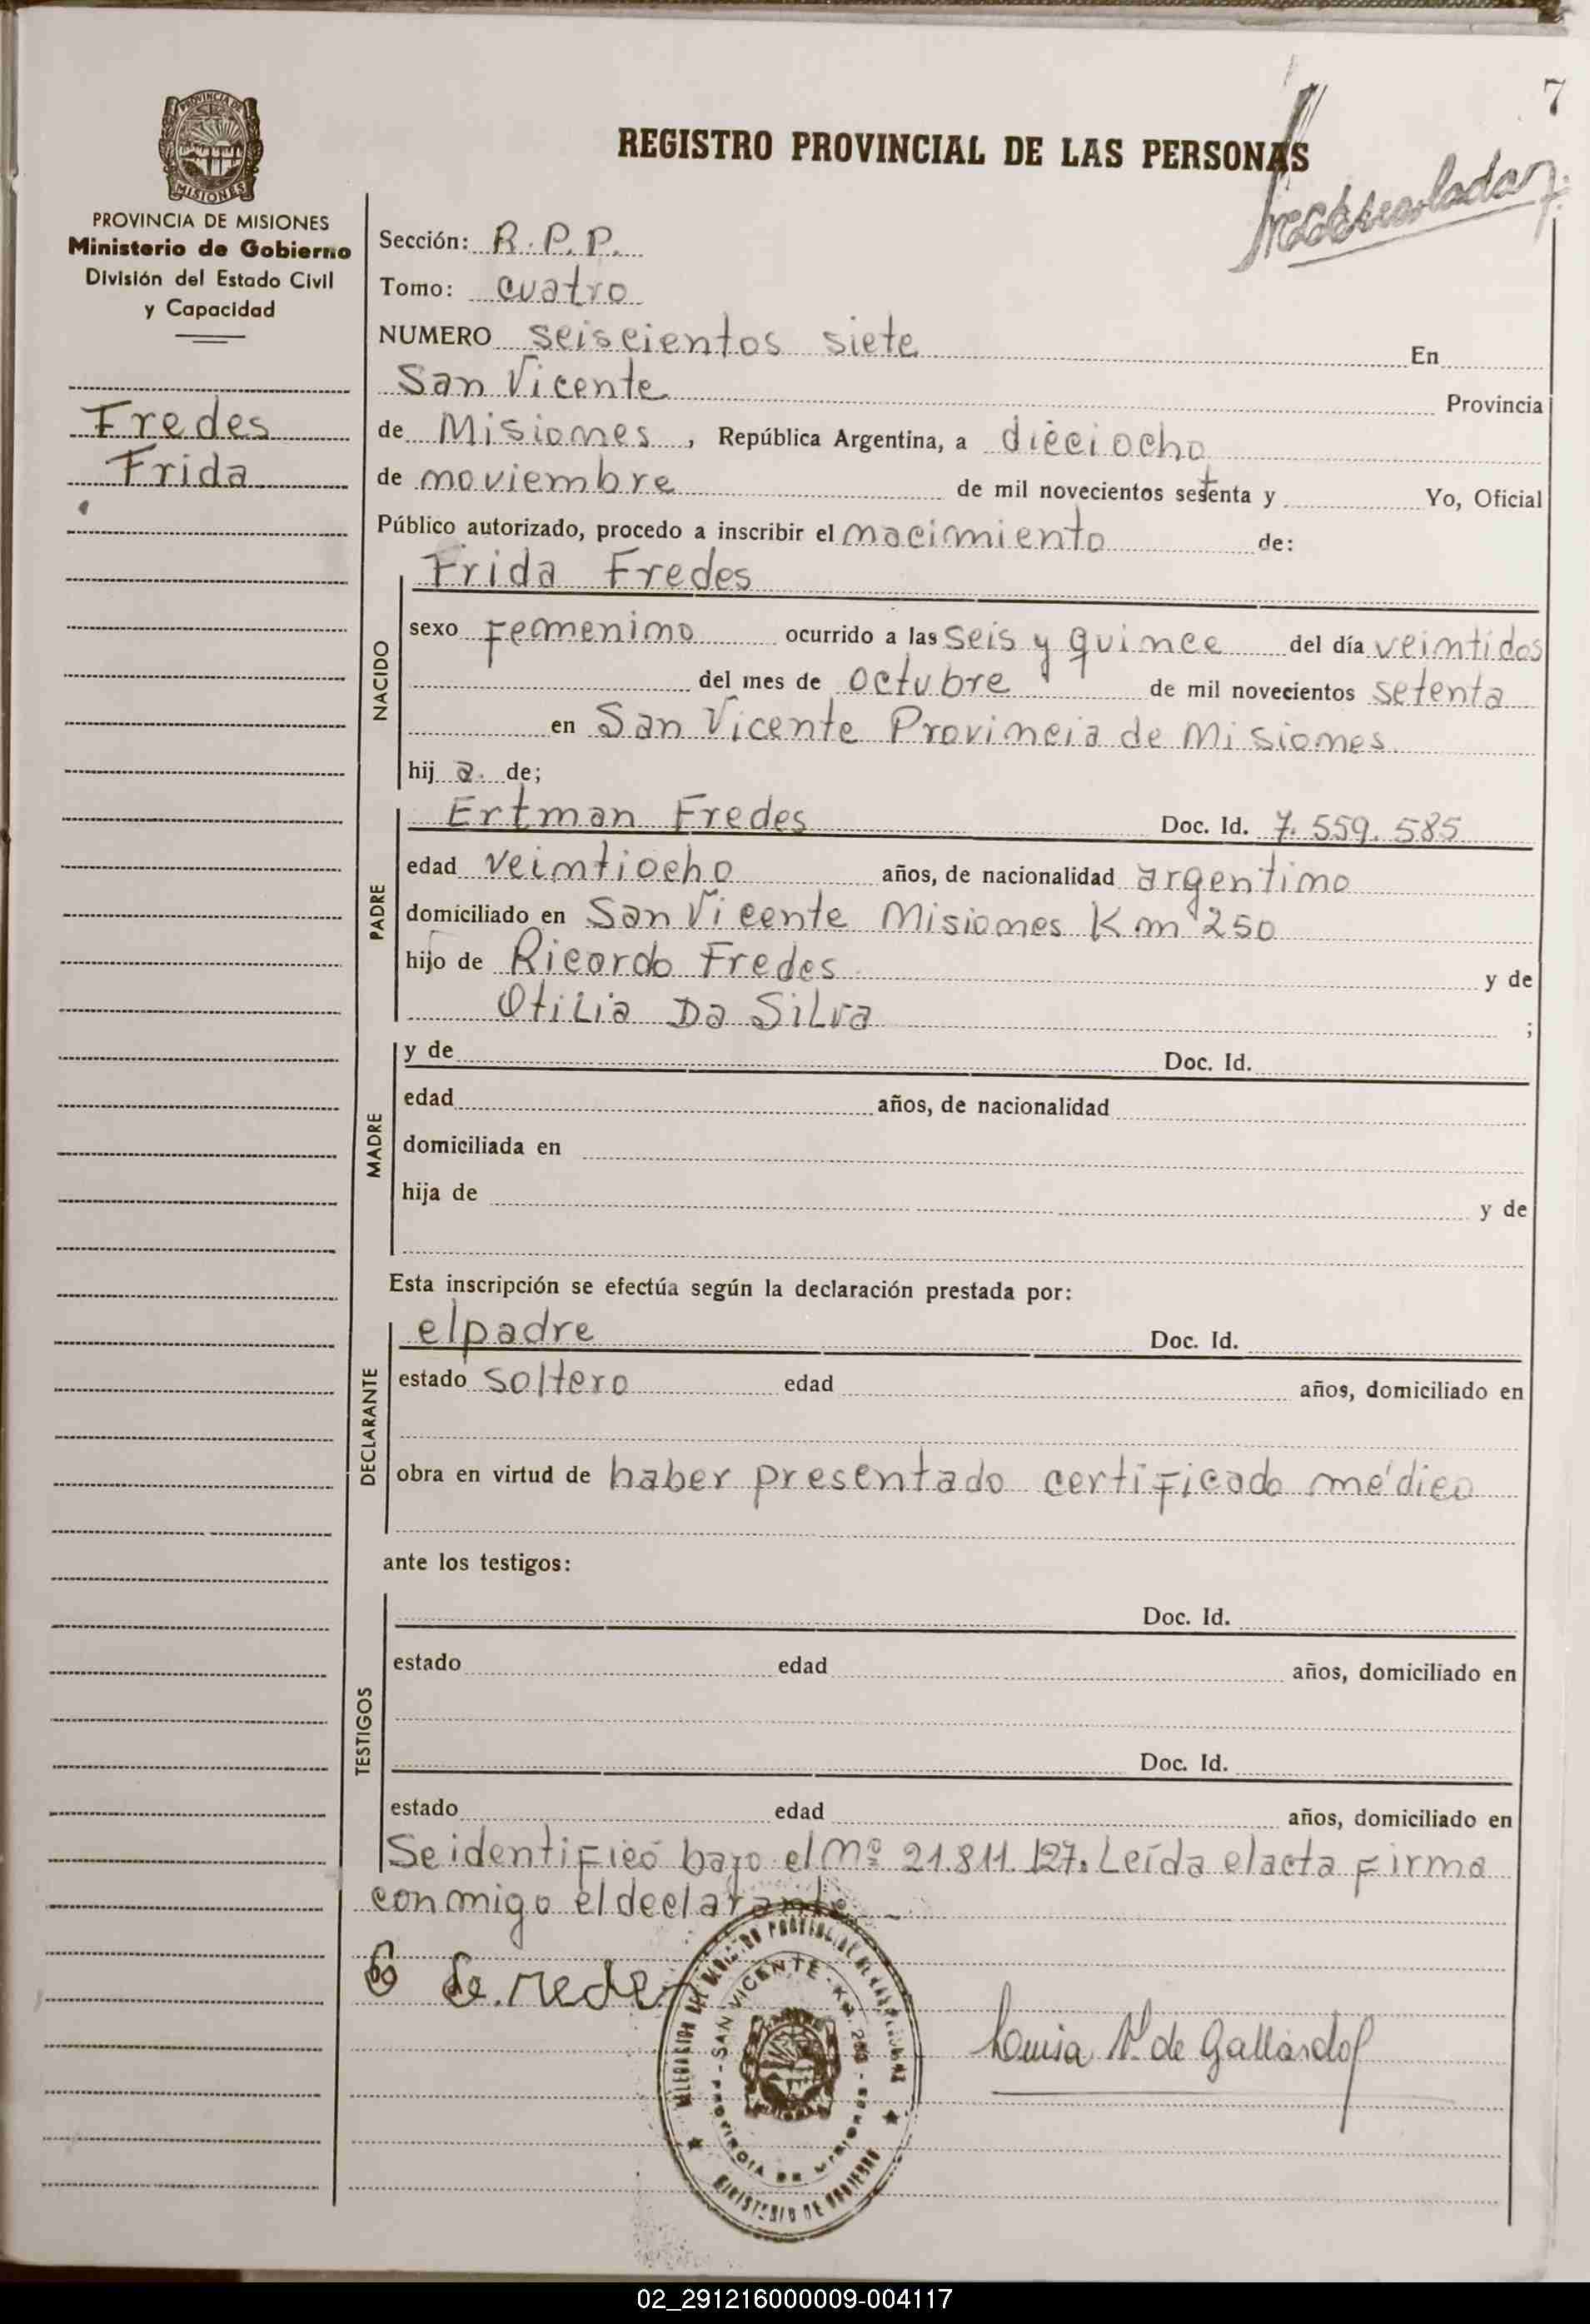 7
REGISTRO PROVINCIAL DE LAS PERSONAS
PROVINCIA DE
MISIONES
PROVINCIA DE MISIONES
Ministerio de Gobierno
División del Estado Civil
y Capacidad
Fredes
Frida
Sección: R.P.P.
Tomo: cuatro
NUMERO seiscientos siete En
San Vicente Provincia
de Misiones, República Argentina, a dieciocho
de noviembre de mil novecientos setenta y Yo, Oficial
Público autorizado, procedo a inscribir el nacimiento de:
Frida Fredes
NACIDO
sexo femenino ocurrido a las seis y quince del día veintidos
del mes de octubre de mil novecientos setenta
en San Vicente Provincia de Misiones
hij a. de;
PADRE
Ertman Fredes Doc. Id. 7.559.585
edad veintiocho años, de nacionalidad argentino
domiciliado en San Vicente Misiones Km 250
hijo de Ricardo Fredes y de
Otilia Da Silva ;
MADRE
y de Doc. Id.
edad años, de nacionalidad
domiciliada en
hija de y de
Esta inscripción se efectúa según la declaración prestada por:
DECLARANTE
el padre Doc. Id.
estado soltero edad años, domiciliado en
obra en virtud de haber presentado certificado médico
ante los testigos:
TESTIGOS
Doc. Id.
estado edad años, domiciliado en
Doc. Id.
estado edad años, domiciliado en
Se identificó bajo el Nº 21.811.127. Leída el acta firma
conmigo el declarante.
Luisa de Gallardo
SAN VICENTE - KM. 250 -
PROVINCIA DE MISIONES
MINISTERIO DE GOBIERNO
02_291216000009-004117